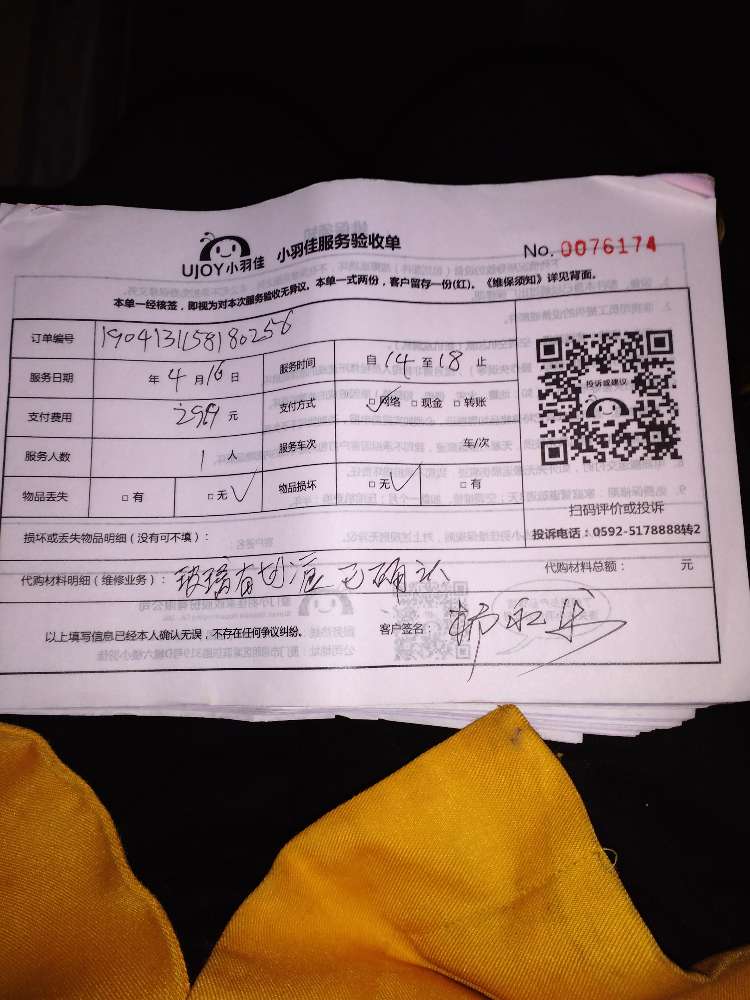 UJOY小羽佳 小羽佳服务验收单 No. 0076174
本单一经核签，即视为对本次服务验收无异议。本单一式两份，客户留存一份(红)。《维保须知》详见背面。
订单编号 1904131158180256
服务日期 年 4 月 16 日 服务时间 自 14 至 18 止
支付费用 299 元 支付方式 ☑网络 □现金 □转账
服务人数 1 人 服务车次 车/次
物品丢失 □有 □无√ 物品损坏 □无√ □有
投诉或建议
扫码评价或投诉
投诉电话：0592-5178888转2
损坏或丢失物品明细（没有可不填）：
代购材料明细（维修业务）： 玻璃有划痕 已确认 代购材料总额： 元
以上填写信息已经本人确认无误，不存在任何争议纠纷。 客户签名：